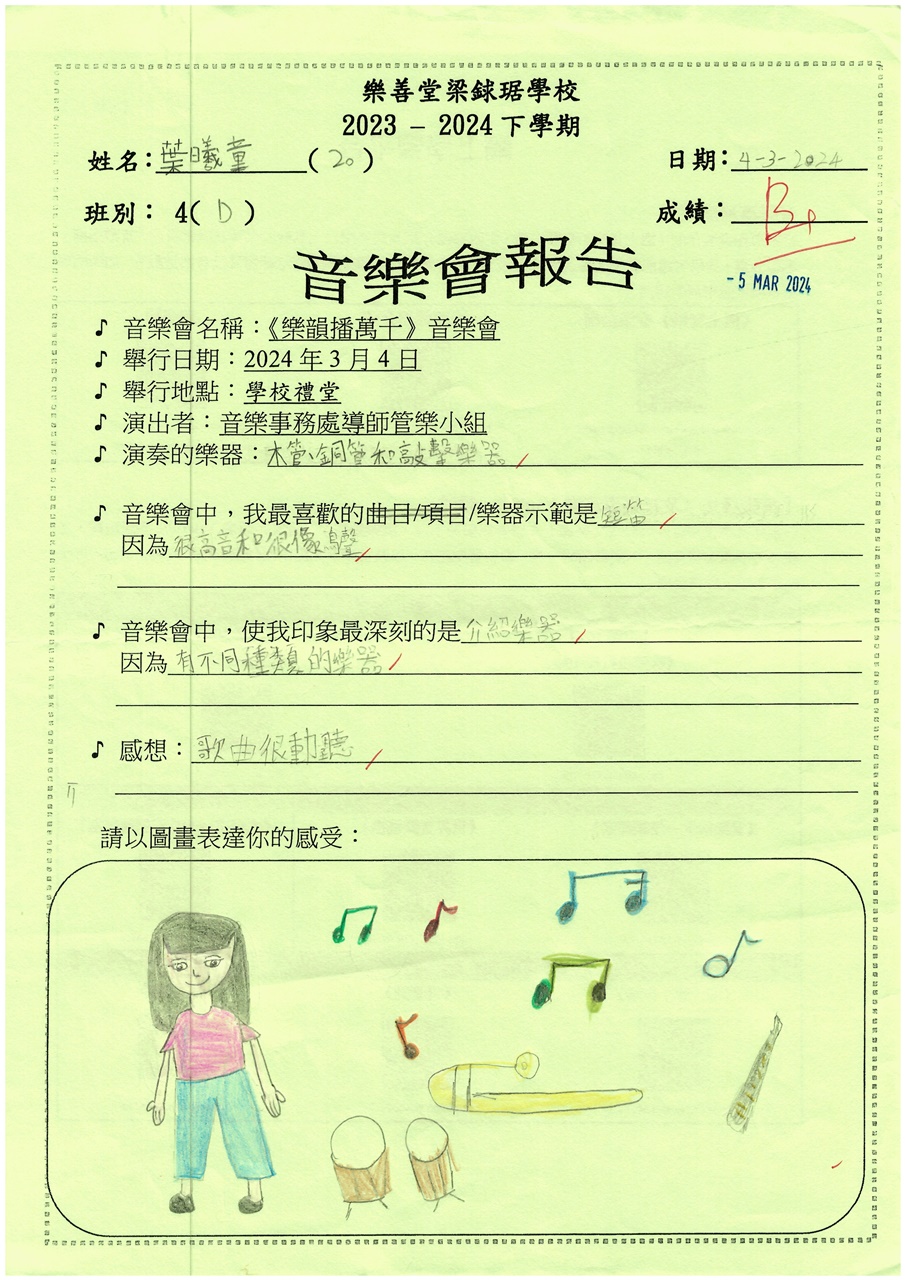 樂善堂梁銶琚學校
2023 – 2024 下學期
姓名：葉曦童 ( 20 ) 日期：4-3-2024
班別： 4( D ) 成績：B+
音樂會報告
- 5 MAR 2024
♪ 音樂會名稱：《樂韻播萬千》音樂會
♪ 舉行日期：2024 年 3 月 4 日
♪ 舉行地點：學校禮堂
♪ 演出者：音樂事務處導師管樂小組
♪ 演奏的樂器：木管、銅管和敲擊樂器
♪ 音樂會中，我最喜歡的曲目/項目/樂器示範是短笛
因為很高音和很像鳥聲
♪ 音樂會中，使我印象最深刻的是介紹樂器
因為有不同種類的樂器
♪ 感想：歌曲很動聽
請以圖畫表達你的感受：